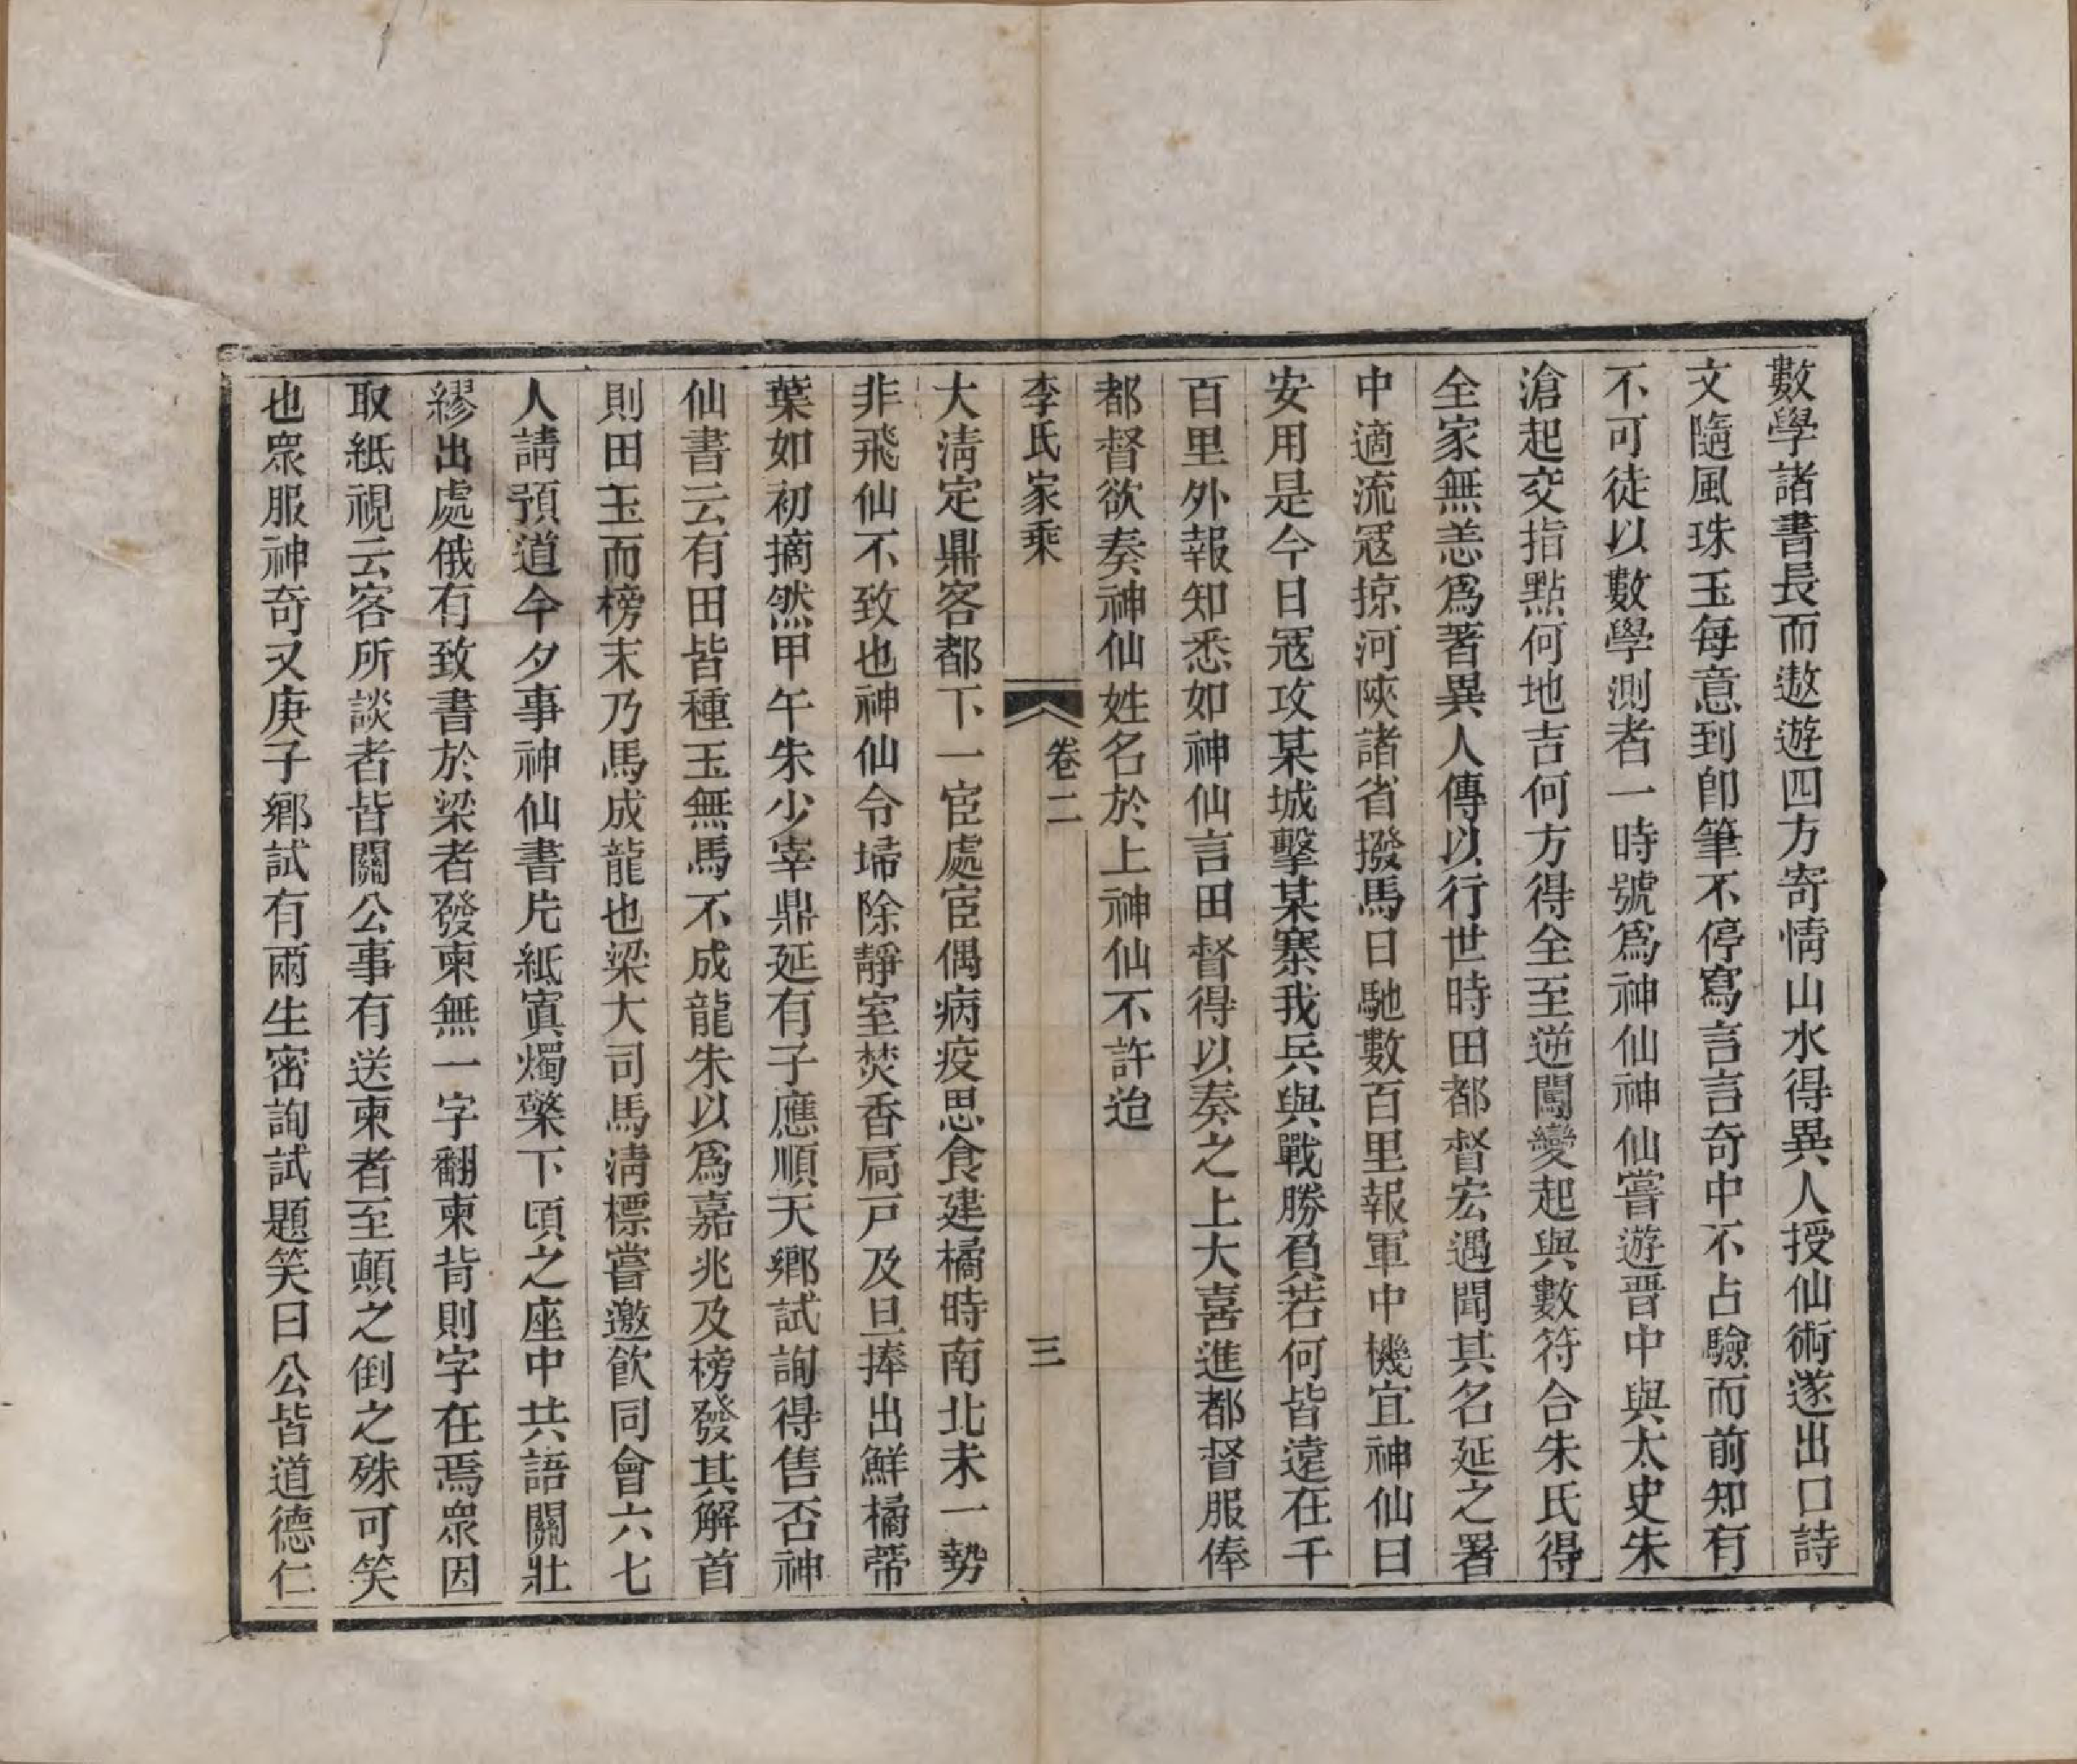 數學諸書長而遨遊四方寄情山水得異人授仙術遂出口詩
文隨風珠玉每意到卽筆不停寫言言奇中不占驗而前知有
不可徒以數學測者一時號爲神仙神仙嘗遊晋中與太史朱
滄起交指點何地吉何方得全至逆闖變起與數符合朱氏得
全家無恙爲著異人傳以行世時田都督宏遇聞其名延之署
中適流寇掠河陝諸省撥馬日馳數百里報軍中機宜神仙曰
安用是今日寇攻某城擊某寨我兵與戰勝負若何皆遠在千
百里外報知悉如神仙言田督得以奏之上大喜進都督服俸
都督欲奏神仙姓名於上神仙不許迨
李氏家乘
卷二
三
大淸定鼎客都下一宦處宦偶病疫思食建橘時南北未一勢
非飛仙不致也神仙令埽除靜室焚香扃戸及旦捧出鮮橘蒂
葉如初摘然甲午朱少宰鼎延有子應順天鄕試詢得售否神
仙書云有田皆種玉無馬不成龍朱以爲嘉兆及榜發其解首
則田玉而榜末乃馬成龍也梁大司馬淸標嘗邀飮同會六七
人請預道今夕事神仙書片紙寘燭檠下頃之座中共語關壯
繆出處俄有致書於梁者發柬無一字翻柬背則字在焉眾因
取紙視云客所談者皆關公事有送柬者至顛之倒之殊可笑
也眾服神奇又庚子鄕試有兩生密詢試題笑曰公皆道德仁